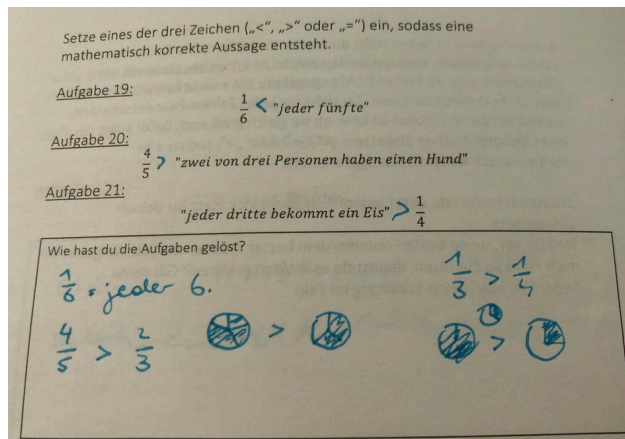 Setze eines der drei Zeichen („<“, „>“ oder „=“) ein, sodass eine
mathematisch korrekte Aussage entsteht.
Aufgabe 19:
1/6 < "jeder fünfte"
Aufgabe 20:
4/5 > "zwei von drei Personen haben einen Hund"
Aufgabe 21:
"jeder dritte bekommt ein Eis" > 1/4
Wie hast du die Aufgaben gelöst?
1/6 = jeder 6.
1/3 > 1/4
4/5 > 2/3
>
>